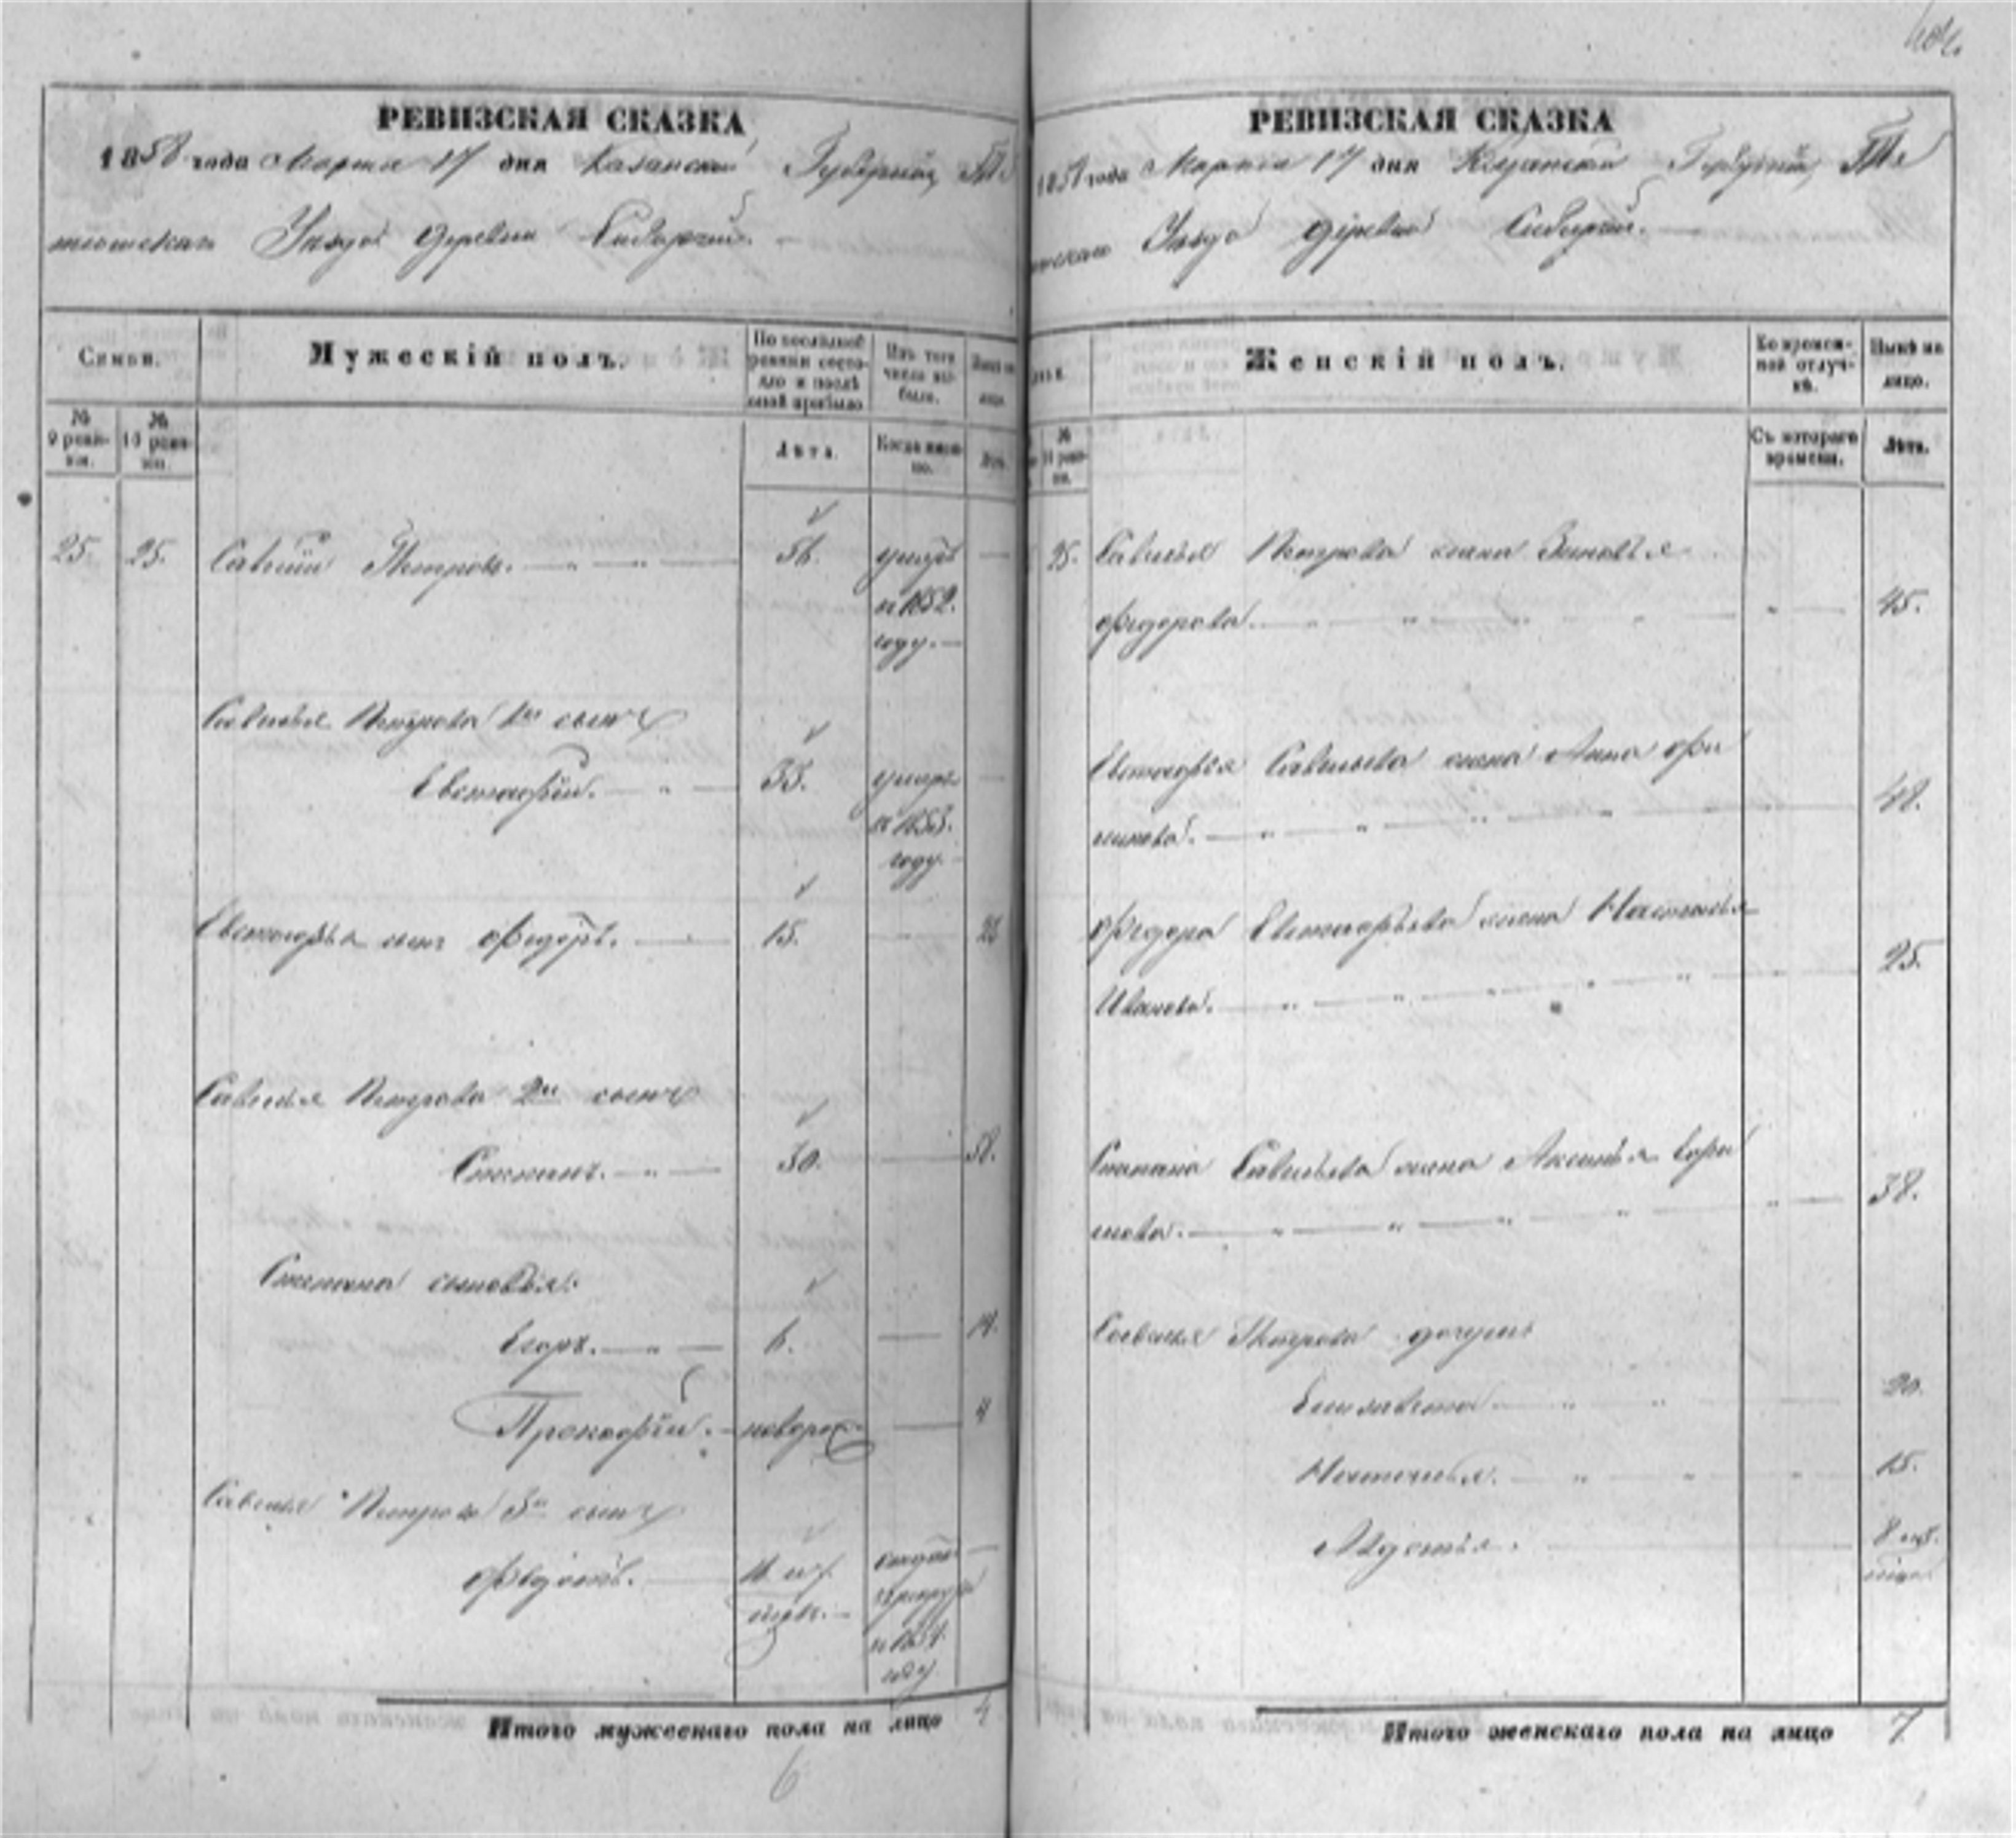 РЕВИЗСКАЯ СКАЗКА
1858 года Марта 17 дня Казанской Губерніи, Те
тюшскаго Уезда деревни
Семьи.
Мужескій полъ.
По послѣдней ревизіи состояло и послѣ оной прибыло
Изъ того числа выбыло.
Нынѣ на лицо.
№ 9 ревизіи.
№ 10 ревизіи.
Лѣта.
Когда именно.
Лѣта.
25. 25. Савелій Петровъ. 56. умеръ
въ 1852.
году.
Савелья Петрова 1й сынъ
Евстафій. 35. умеръ
въ 1853.
году.
Евстафья сынъ Федоръ. 15.
Савелья Петрова 2й сынъ
Степанъ. 30. 38.
Степана сыновья:
Егоръ. 6. 14.
Прокофій. новорож. 4
Савелья Петрова 3й сынъ
въ
году
Итого мужескаго пола на лицо 4
6
РЕВИЗСКАЯ СКАЗКА
1858 года Марта 17 дня Казанской Губерніи, Те
Уезда деревни
Женскій полъ.
Во временной отлучкѣ.
Нынѣ на лицо.
№ 10 ревизіи.
Съ котораго времени.
Лѣта.
25. Савелья Петрова жена Зиновья
Федорова. 45.
Евстафья Савельева жена Анна Фи
Федора Евстафьева жена Настасья
Иванова. 25.
Степана Савельева жена Аксинья
38.
Савелья Петрова дочери
Елизавета 20.
Наталья. 15.
Авдотья. 8
Итого женскаго пола на лицо 7